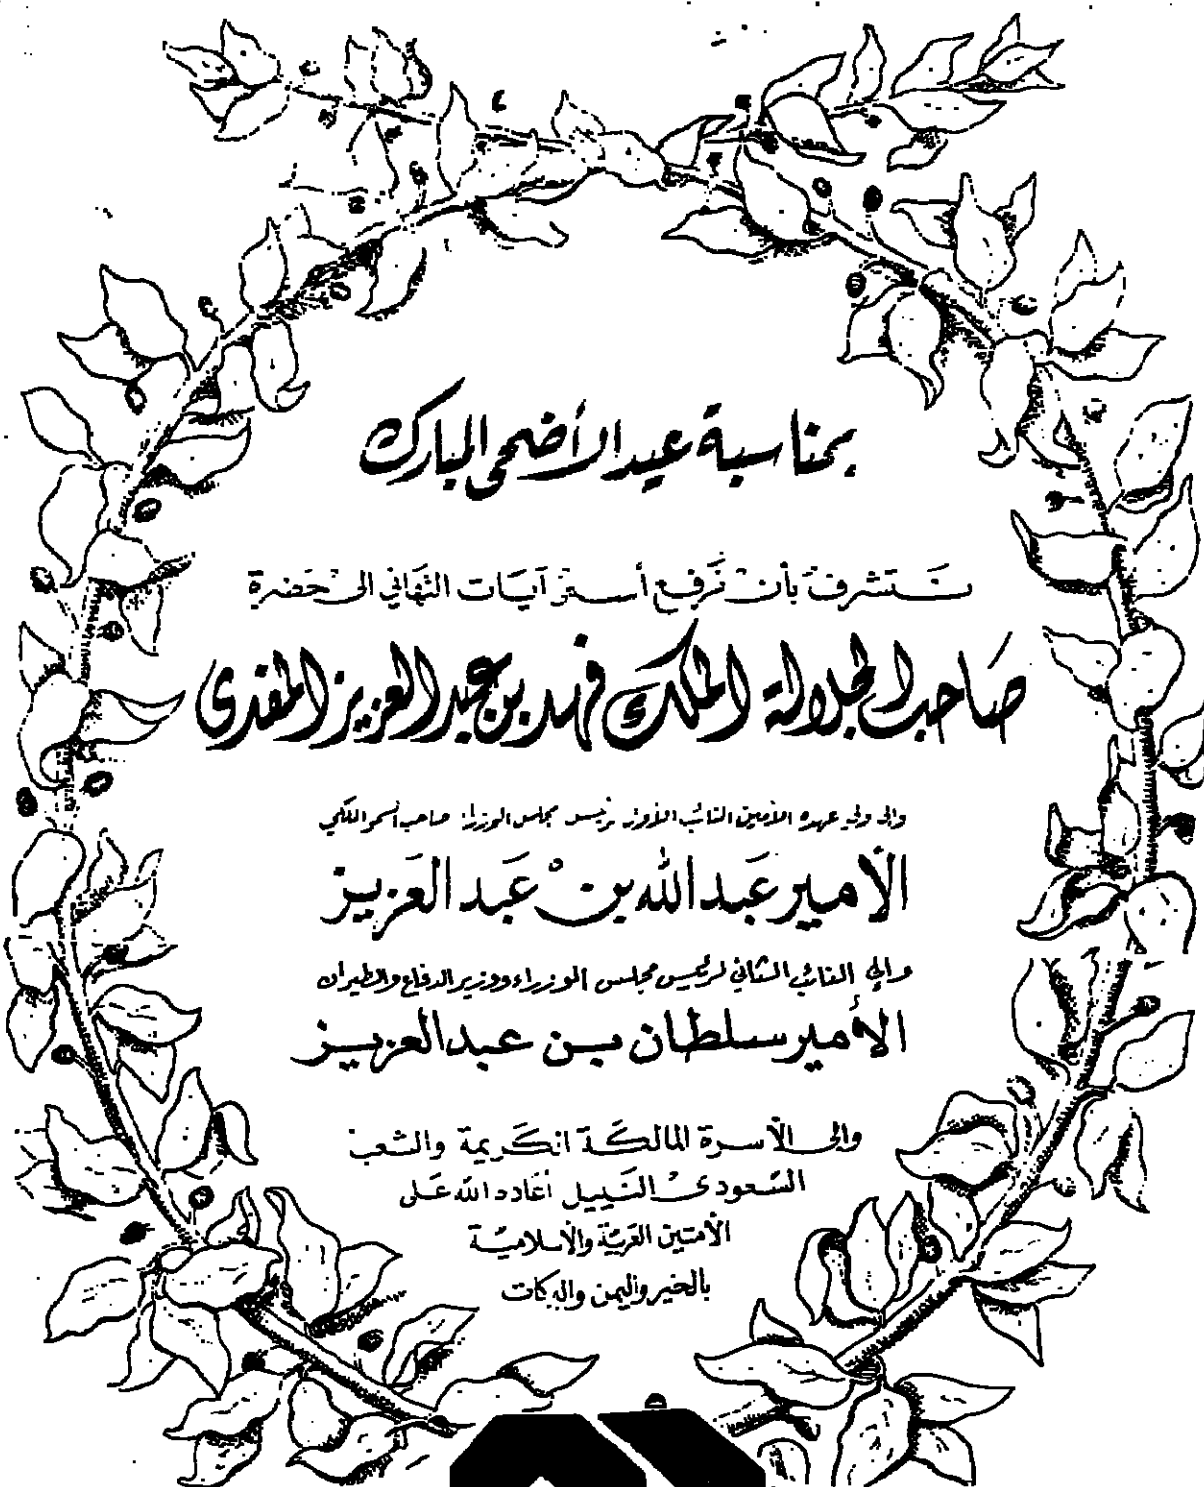 بمناسبة عيد الأضحى المبارك
نتشرف بأن نرفع أسمى آيات التهاني الى حضرة
صاحب الجلالة الملك فهد بن عبد العزيز المفدى
والى ولي عهده الأمين النائب الأول لرئيس مجلس الوزراء صاحب السمو الملكي
الأمير عبد الله بن عبد العزيز
والى النائب الثاني لرئيس مجلس الوزراء ووزير الدفاع والطيران
الأمير سلطان بن عبد العزيز
والى الأسرة المالكة الكريمة والشعب
السعودي النبيل أعاده الله على
الأمتين العربية والأسلامية
بالخير واليمن والبركات